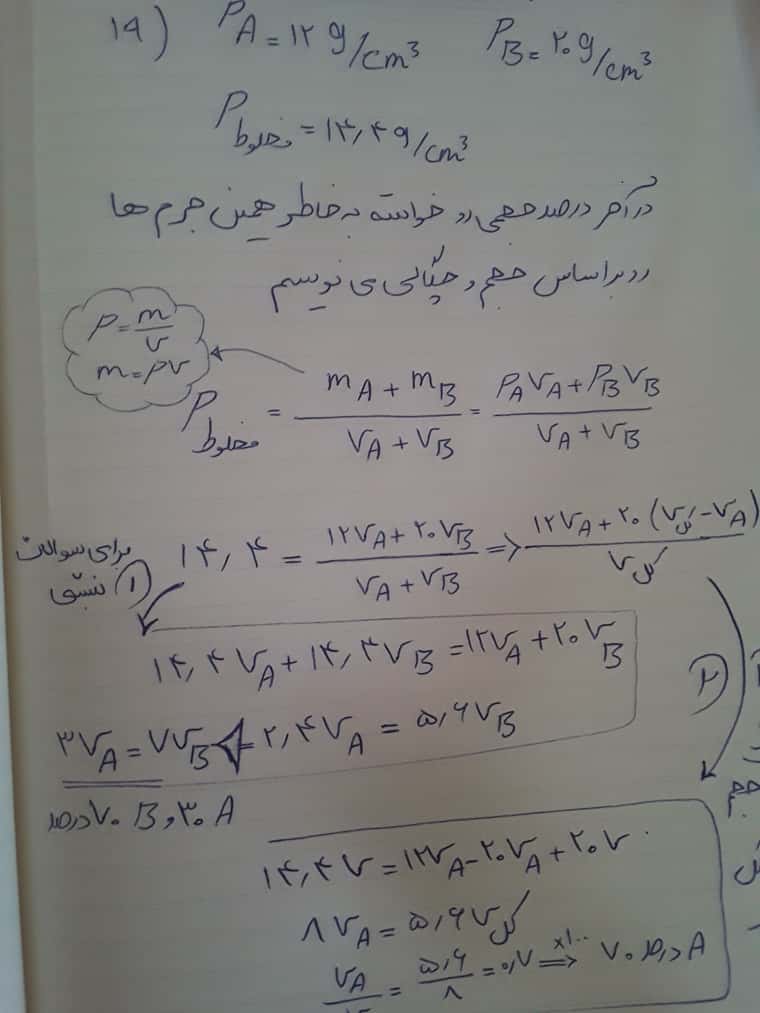 ۱۹) ρA = ۱۲ g/cm³ ρB = ۲۰ g/cm³
ρمخلوط = ۱۴٫۴ g/cm³
در آخر درصد حجمی رو خواسته به خاطر همین جرم ها
رو بر اساس حجم و چگالی می نویسم
ρ = m/V
m = ρV
ρمخلوط = (mA + mB)/(VA + VB) = (ρAVA + ρBVB)/(VA + VB)
۱۴٫۴ = (۱۲VA + ۲۰VB)/(VA + VB) => (۱۲VA + ۲۰(Vکل − VA))/Vکل
برای سوالات
نسبتی ①
۱۴٫۴VA + ۱۴٫۴VB = ۱۲VA + ۲۰VB
۳VA = ۷VB <= ۲٫۴VA = ۵٫۶VB
۷۰ B و ۳۰ A درصد
②
۱۴٫۴V = ۱۲VA − ۲۰VA + ۲۰V
۸VA = ۵٫۶Vکل
VA/ = ۵٫۶/۸ = ۰٫۷ ×۱۰۰ => ۷۰ درصد A
حجم